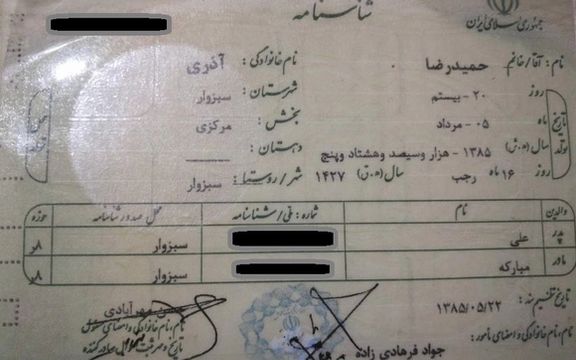 شناسنامه
جمهوری اسلامی ایران
نام : آقا/خانم حمیدرضا نام خانوادگی : آذری
روز ۲۰ - بیستم شهرستان : سبزوار
ماه ۰۵ - مرداد بخش : مرکزی
سال (ه.ش) ۱۳۸۵ - هزار وسیصد وهشتاد وپنج دهستان :
روز ۱۶ ماه رجب سال (ه.ق) ۱۴۲۷ شهر/روستا : سبزوار
تاریخ تولد
محل تولد
والدین نام شماره : ملی/شناسنامه محل صدور شناسنامه حوزه
پدر علی سبزوار ۸ر
مادر مبارکه سبزوار ۸ر
تاریخ تنظیم سند : ۱۳۸۵/۰۵/۲۲
نام، نام خانوادگی و امضای مأمور :
جواد فرهادی زاده
مهرآبادی
نام، نام خانوادگی و امضای
تاریخ و